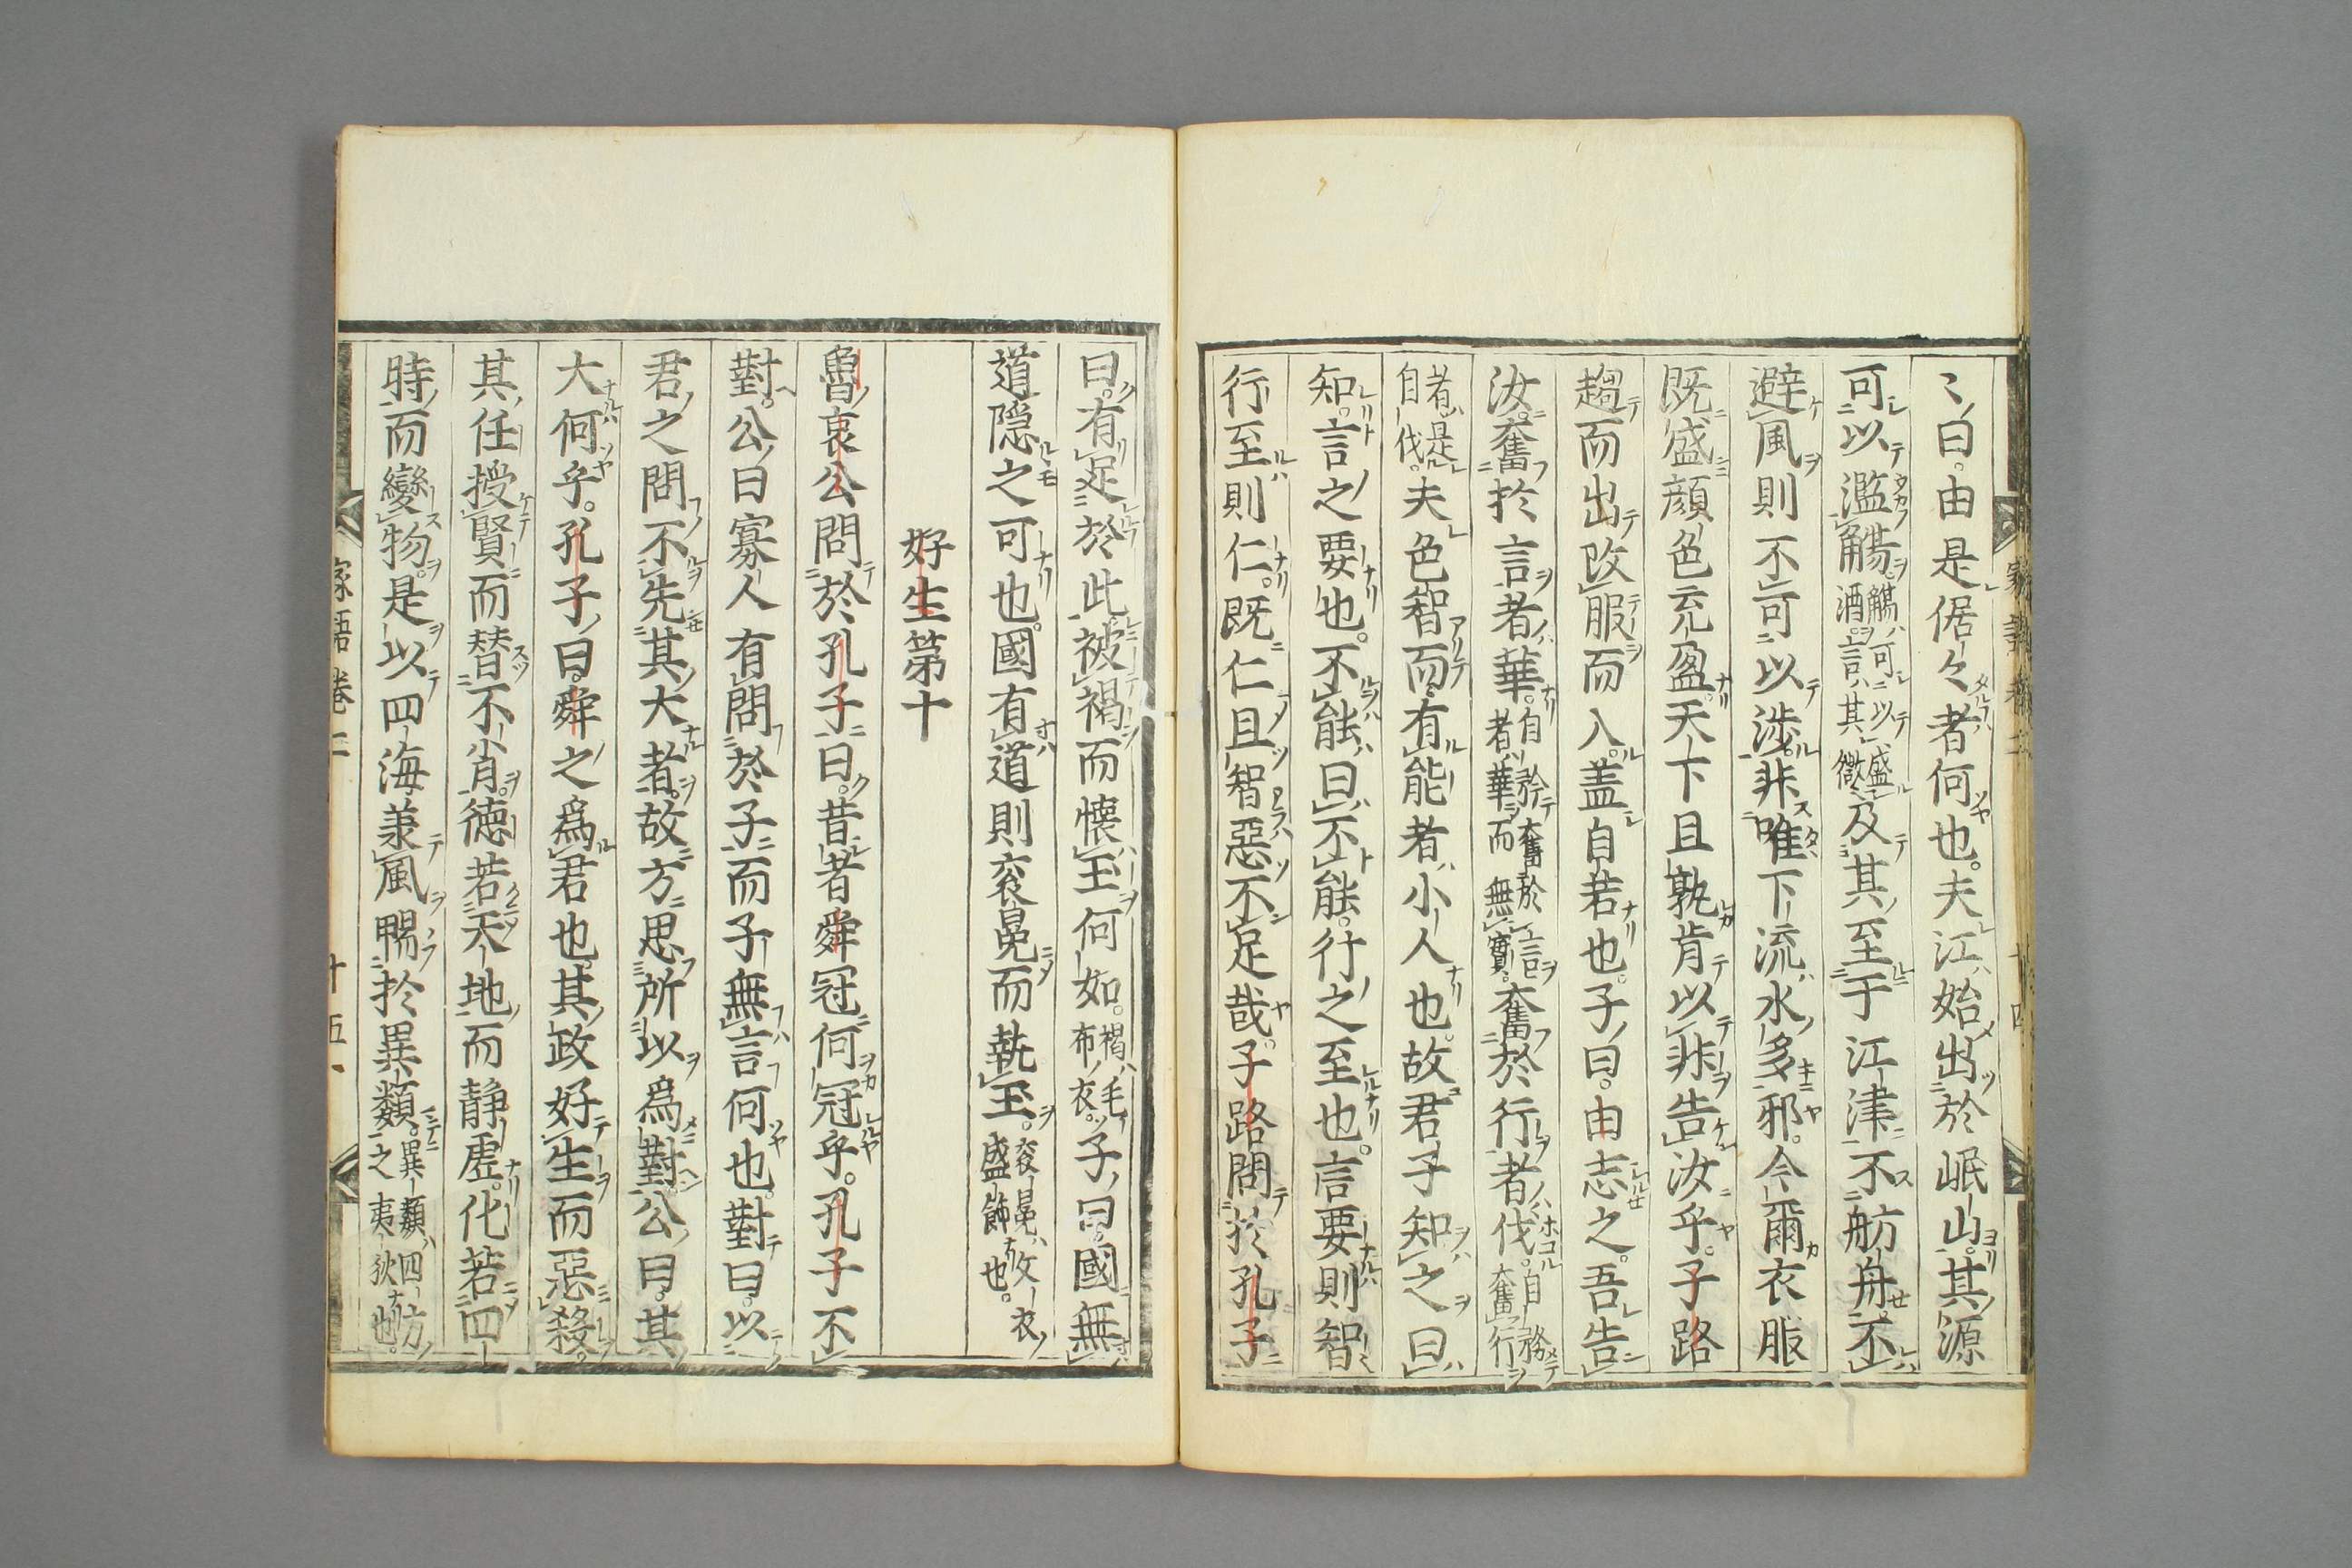 〻曰由是倨々者何也夫江始出於岷山其源
可以濫觴觴可以盛酒言其微及其至于江津不舫舟不
避風則不可以渉非唯下流水多邪今爾衣服
既盛顔色充盈天下且孰肯以非告汝乎子路
趨而出改服而入盖自若也子曰由志之吾告
汝奮於言者華自矜奮於言者華而無實奮於行者伐自務奮行
者是自伐夫色智而有能者小人也故君子知之曰
知言之要也不能曰不能行之至也言要則智
行至則仁既仁且智惡不足哉子路問於孔子
曰有足於此被褐而懐玉何如褐毛布衣子曰國無
道隠之可也國有道則衮冕而執玉衮冕文衣盛飾也
好生第十
魯哀公問於孔子曰昔者舜冠何冠乎孔子不
對公曰寡人有問於子而子無言何也對曰以
君之問不先其大者故方思所以為對公曰其
大何乎孔子曰舜之為君也其政好生而惡殺
其任授賢而替不肖徳若天地而静虚化若四
時而變物是以四海兼風暢於異類異類四方之夷狄也
家語巻二 十五